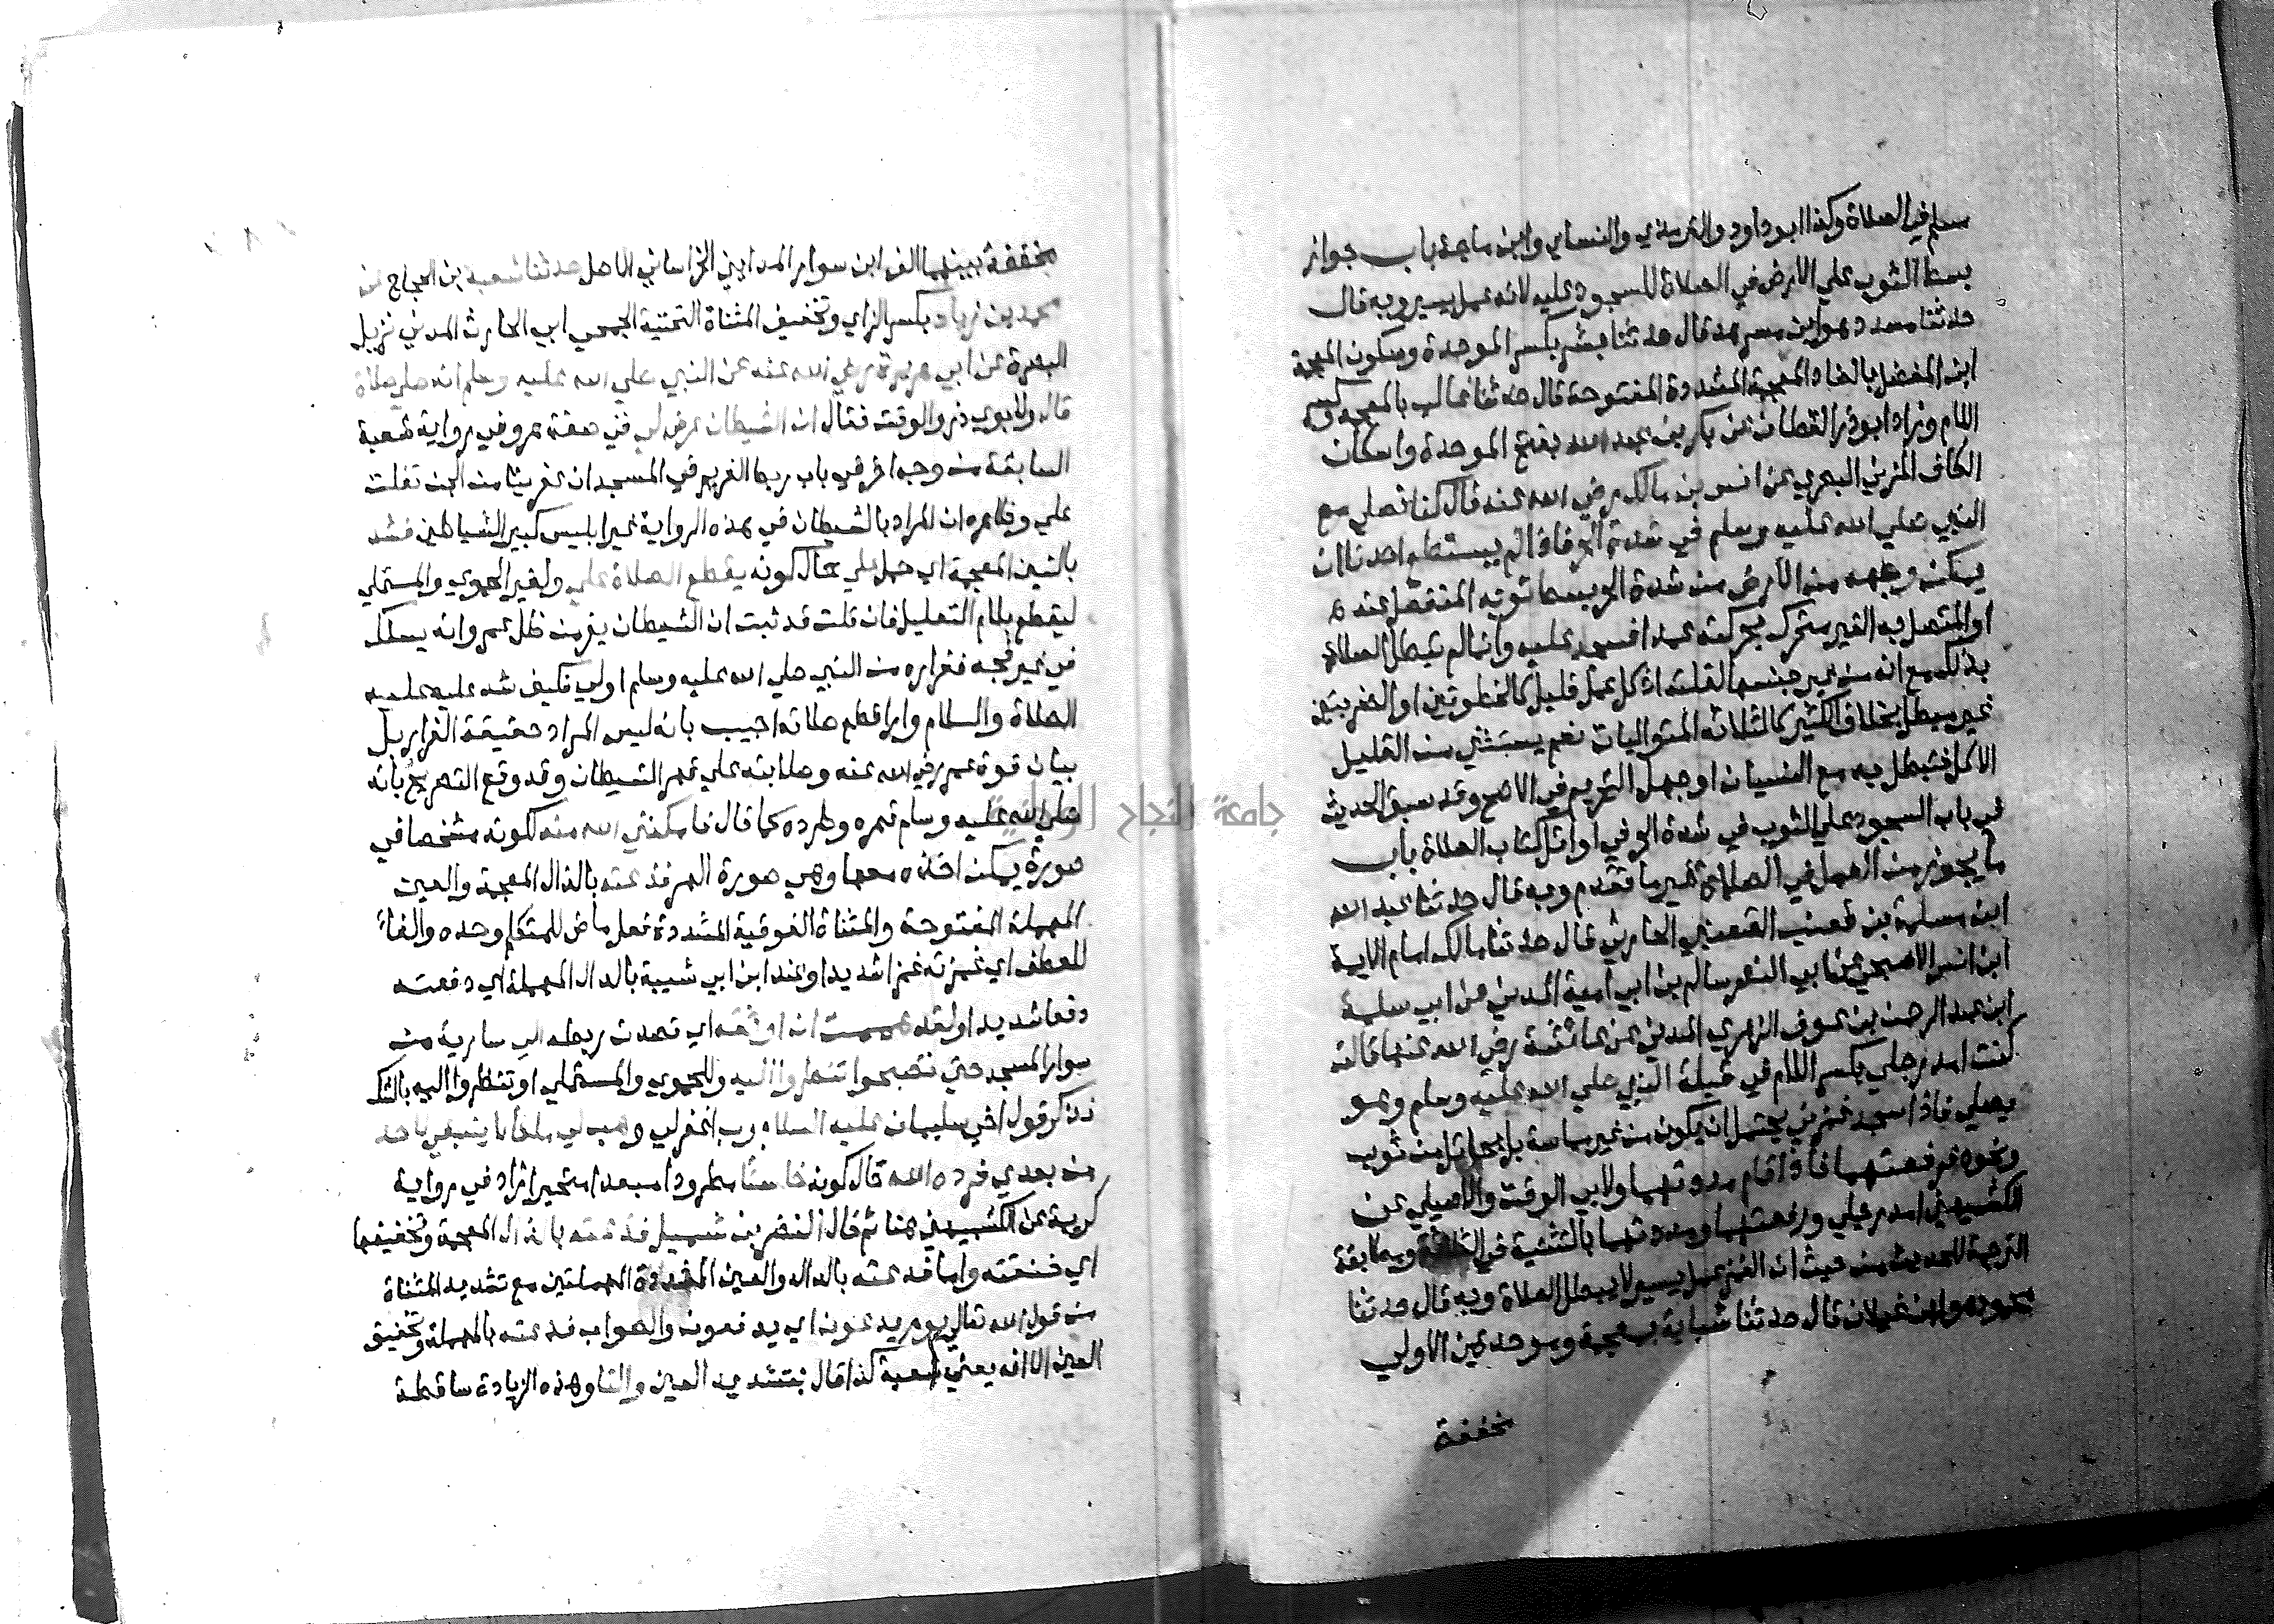 مسلم في الصلاة وكذا ابو داود والترمذي والنساي وابن ماجة باب جواز
بسط الثوب علي الارض في الصلاة للسجود عليه لانه عمل يسير وبه قال
حدثنا مسدد هو ابن مسرهد قال حدثنا بشر بكسر الموحدة وسكون المعجمة
ابن المفضل بالضاد المعجمة المشددة المفتوحة قال حدثنا غالب بالمعجمة وكسر
اللام وزاد ابو ذر القطان عن بكر بن عبد الله بفتح الموحدة واسكان
الكاف المزني البصري عن انس بن مالك رضي الله عنه قال كنا نصلي مع
النبي صلي الله عليه وسلم في شدة الحر فاذا لم يستطع احدنا ان
يمكن وجهه من الارض من شدة الحر بسط ثوبه المنفصل عنه
او المتصل به الغير متحرك بحركته عمدا فسجد عليه وانما لم تبطل الصلاة
بذلك مع انه من غير جنسها لقلته اذ كل عمل قليل كالخطوتين او الضربتين
غير مبطل بخلاف الكثير كالثلاثه المتواليات نعم يستثني من القليل
الاكل فتبطل به مع النسيان او جهل التحريم في الاصح وقد سبق الحديث
في باب السجود علي الثوب في شدة الحر في اوائل كتاب الصلاة باب
ما يجوز من العمل في الصلاة غير ما تقدم وبه قال حدثنا عبد الله
ابن مسلمة بن قعنب القعنبي الحارثي قال حدثنا مالك امام الايمة
ابن انس الاصبحي عن ابي النضر سالم بن ابي امية المدني عن ابي سلمة
ابن عبد الرحمن بن عوف الزهري المدني عن عائشة رضي الله عنها قالت
كنت امد رجلي بكسر اللام في قبلة النبي صلي الله عليه وسلم وهو
يصلي فاذا سجد غمزني يحتمل ان يكون من غير مماسة بل بحائل من ثوب
ونحوه فرفعتها فاذا قام مددتها ولابي الوقت والاصيلي عن
الكشميهني امد رجلي ورفعتهما ومددتهما بالتثنية في الثلاثة ومطابقة
الترجمة للحديث من حيث ان الغمز عمل يسير لا يبطل الصلاة وبه قال حدثنا
محمود هو ابن غيلان قال حدثنا شبابة بمعجمة وموحدتين الاولي
مخففة
مخففة بينهما الف ابن سوار المدايني الخراساني الاصل حدثنا شعبة بن الحجاج عن
محمد بن زياد بكسر الزاي وتخفيف المثناة التحتية الجمحي ابي الحارث المدني نزيل
البصرة عن ابي هريرة رضي الله عنه عن النبي صلي الله عليه وسلم انه صلي صلاة
قال ولابوي ذر والوقت فقال ان الشيطان عرض لي في صفة هر وفي رواية شعبة
السابقة من وجه اخر في باب ربط الغريم في المسجد ان عفريتا من الجن تفلت
علي وظاهره ان المراد بالشيطان في هذه الرواية غير ابليس كبير الشياطين فشد
بالشين المعجمة اي حمل علي حال كونه يقطع الصلاة علي ولغير الحموي والمستملي
ليقطع بلام التعليل فان قلت قد ثبت ان الشيطان يفر من ظل عمر وانه يسلك
في غير فجه ففراره من النبي صلي الله عليه وسلم اولي فكيف شد عليه عليه
الصلاة والسلام واراد قطع صلاته اجيب بانه ليس المراد حقيقة الفرار بل
بيان قوة عمر رضي الله عنه وصلابته علي قهر الشيطان وقد وقع التصريح بانه
صلي الله عليه وسلم قهره وطرده كما قال فامكنني الله منه لكونه مشخصا في
صورة يمكن اخذه معها وهي صورة الهر فذعته بالذال المعجمة والعين
المهملة المفتوحة والمثناة الفوقية المشددة فعل ماض للمتكلم وحده والفأ
للعطف اي غمزته غمزا شديدا وعند ابن ابي شيبة بالدال المهملة اي دفعته
دفعا شديدا ولقد هممت ان اوثقه اي قصدت ربطه الي سارية من
سوار المسجد حتي تصبحوا تنظروا اليه وللحموي والمستملي او تنظروا اليه بالشك
فذكرقول اخي سليمان عليه السلام رب اغفر لي وهب لي ملكا لا ينبغي لاحد
من بعدي فرده الله حال كونه خاسئا مطرودا مبعدا متحيرا زاد في رواية
كريمة عن الكشميهني هنا ثم قال النضر بن شميل فذعته بالذال المعجمة وتخفيفها
اي خنقته واما فدعته بالدال والعين المشددة المهملتين مع تشديد المثناة
من قول الله تعالي يوم يدعون اي يدفعون والصواب فدعته بالمهملة وتخفيف
العين الا انه يعني شعبة كذا قال بتشديد العين والتا وهذه الزيادة ساقطة
جامعة النجاح الوطنية